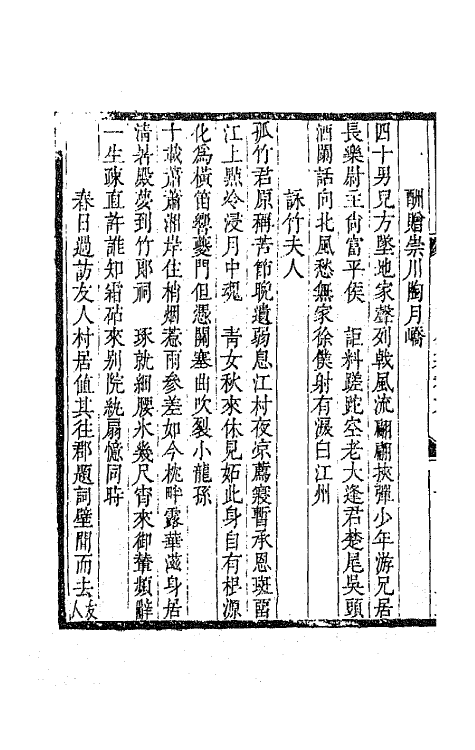 酬贈崇川陶月嶠
四十男兒方墜地家聲列戟風流翩翩挾彈少年游兄居
長樂尉主尙富平侯　詎料蹉跎空老大逢君楚尾吳頭
酒闌話向北風愁無家徐僕射有淚白江州
詠竹夫人
孤竹君原稱苦節晩遺弱息江村夜凉薦寢暫承恩斑畱
江上㸃冷浸月中魂　靑女秋來休見妬此身自有根源
化爲橫笛響夔門但憑關塞曲吹裂小龍孫
十載蕭蕭湘岸住梢烟惹雨參差如今桃畔露華滋身居
淸暑殿夢到竹郎祠　琢就細腰氷幾尺宵來御輦頻辭
一生疎直許誰知霜砧來别院紈扇憶同時
春日過訪友人村居值其往郡題詞壁間而去友人